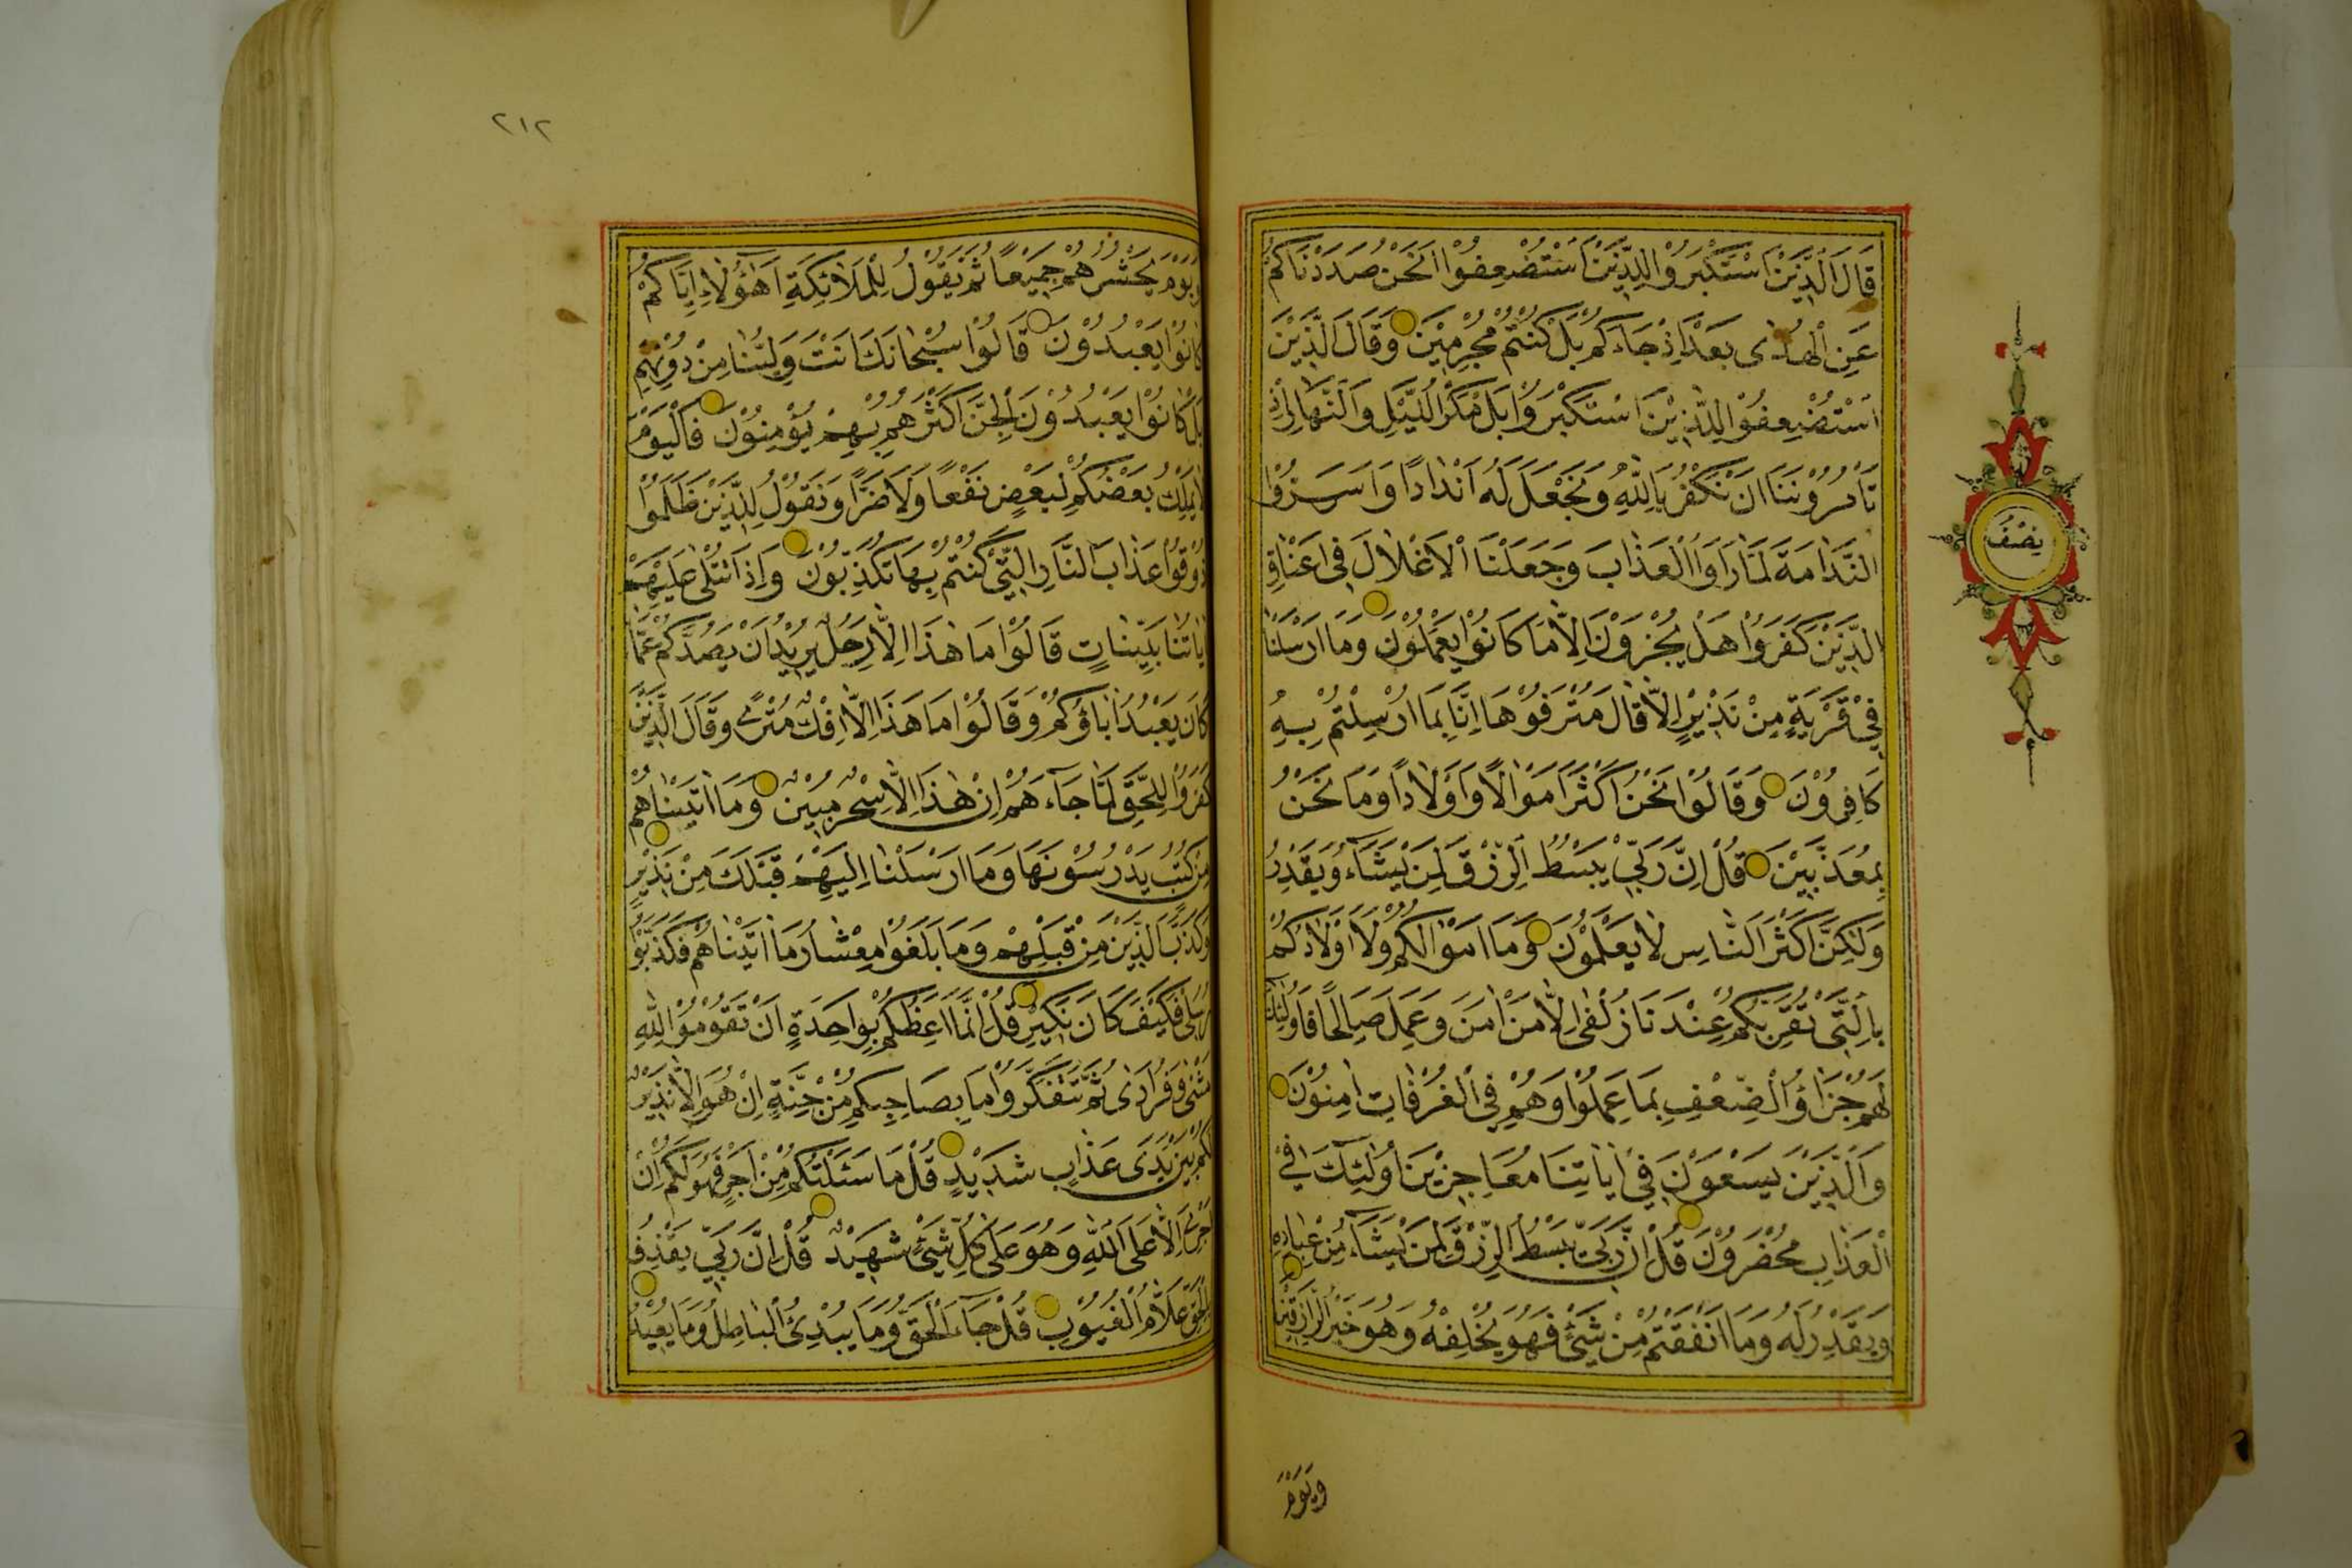 قَالَ الَّذِيْنَ اسْتَكْبَرُوْا لِلَّذِيْنَ اسْتُضْعِفُوْا اَنَحْنُ صَدَدْنَاكُمْ
عَنِ الْهُدٰى بَعْدَ اِذْ جَاءَكُمْ بَلْ كُنْتُمْ مُجْرِمِيْنَ وَقَالَ الَّذِيْنَ
اسْتُضْعِفُوْا لِلَّذِيْنَ اسْتَكْبَرُوْا بَلْ مَكْرُ الَّيْلِ وَالنَّهَارِ اِذْ
تَأْمُرُوْنَنَا اَنْ نَكْفُرَ بِاللّٰهِ وَنَجْعَلَ لَهُ اَنْدَادًا وَاَسَرُّوا
النَّدَامَةَ لَمَّا رَاَوُا الْعَذَابَ وَجَعَلْنَا الْاَغْلَالَ فِى اَعْنَاقِ
الَّذِيْنَ كَفَرُوْا هَلْ يُجْزَوْنَ اِلَّا مَا كَانُوْا يَعْمَلُوْنَ وَمَا اَرْسَلْنَا
فِىْ قَرْيَةٍ مِنْ نَذِيْرٍ اِلَّا قَالَ مُتْرَفُوْهَا اِنَّا بِمَا اُرْسِلْتُمْ بِهِ
كَافِرُوْنَ وَقَالُوْا نَحْنُ اَكْثَرُ اَمْوَالًا وَاَوْلَادًا وَمَا نَحْنُ
بِمُعَذَّبِيْنَ قُلْ اِنَّ رَبِّىْ يَبْسُطُ الرِّزْقَ لِمَنْ يَشَاءُ وَيَقْدِرُ
وَلٰكِنَّ اَكْثَرَ النَّاسِ لَا يَعْلَمُوْنَ وَمَا اَمْوَالُكُمْ وَلَا اَوْلَادُكُمْ
بِالَّتِىْ تُقَرِّبُكُمْ عِنْدَنَا زُلْفٰى اِلَّا مَنْ اٰمَنَ وَعَمِلَ صَالِحًا فَاُولٰئِكَ
لَهُمْ جَزَاؤُ الضِّعْفِ بِمَا عَمِلُوْا وَهُمْ فِى الْغُرُفَاتِ اٰمِنُوْنَ
وَالَّذِيْنَ يَسْعَوْنَ فِىْ اٰيَاتِنَا مُعَاجِزِيْنَ اُولٰئِكَ فِى
الْعَذَابِ مُحْضَرُوْنَ قُلْ اِنَّ رَبِّىْ يَبْسُطُ الرِّزْقَ لِمَنْ يَشَاءُ مِنْ عِبَادِهِ
وَيَقْدِرُ لَهُ وَمَا اَنْفَقْتُمْ مِنْ شَىْءٍ فَهُوَ يُخْلِفُهُ وَهُوَ خَيْرُ الرَّازِقِيْنَ
وَيَوْمَ
نِصْفُ
٢١٢
وَيَوْمَ يَحْشُرُهُمْ جَمِيْعًا ثُمَّ يَقُوْلُ لِلْمَلَائِكَةِ اَهٰؤُلَاءِ اِيَّاكُمْ
كَانُوْا يَعْبُدُوْنَ قَالُوْا سُبْحَانَكَ اَنْتَ وَلِيُّنَا مِنْ دُوْنِهِمْ
بَلْ كَانُوْا يَعْبُدُوْنَ الْجِنَّ اَكْثَرُهُمْ بِهِمْ مُؤْمِنُوْنَ فَالْيَوْمَ
لَا يَمْلِكُ بَعْضُكُمْ لِبَعْضٍ نَفْعًا وَلَا ضَرًّا وَنَقُوْلُ لِلَّذِيْنَ ظَلَمُوْا
ذُوْقُوْا عَذَابَ النَّارِ الَّتِىْ كُنْتُمْ بِهَا تُكَذِّبُوْنَ وَاِذَا تُتْلٰى عَلَيْهِمْ
اٰيَاتُنَا بَيِّنَاتٍ قَالُوْا مَا هٰذَا اِلَّا رَجُلٌ يُرِيْدُ اَنْ يَصُدَّكُمْ عَمَّا
كَانَ يَعْبُدُ اٰبَاؤُكُمْ وَقَالُوْا مَا هٰذَا اِلَّا اِفْكٌ مُفْتَرًى وَقَالَ الَّذِيْنَ
كَفَرُوْا لِلْحَقِّ لَمَّا جَاءَهُمْ اِنْ هٰذَا اِلَّا سِحْرٌ مُبِيْنٌ وَمَا اٰتَيْنَاهُمْ
مِنْ كُتُبٍ يَدْرُسُوْنَهَا وَمَا اَرْسَلْنَا اِلَيْهِمْ قَبْلَكَ مِنْ نَذِيْرٍ
وَكَذَّبَ الَّذِيْنَ مِنْ قَبْلِهِمْ وَمَا بَلَغُوْا مِعْشَارَ مَا اٰتَيْنَاهُمْ فَكَذَّبُوْا
رُسُلِى فَكَيْفَ كَانَ نَكِيْرِ قُلْ اِنَّمَا اَعِظُكُمْ بِوَاحِدَةٍ اَنْ تَقُوْمُوْا لِلّٰهِ
مَثْنٰى وَفُرَادٰى ثُمَّ تَتَفَكَّرُوْا مَا بِصَاحِبِكُمْ مِنْ جِنَّةٍ اِنْ هُوَ اِلَّا نَذِيْرٌ
لَكُمْ بَيْنَ يَدَىْ عَذَابٍ شَدِيْدٍ قُلْ مَا سَئَلْتُكُمْ مِنْ اَجْرٍ فَهُوَ لَكُمْ اِنْ
اَجْرِىَ اِلَّا عَلَى اللّٰهِ وَهُوَ عَلٰى كُلِّ شَىْءٍ شَهِيْدٌ قُلْ اِنَّ رَبِّىْ يَقْذِفُ
بِالْحَقِّ عَلَّامُ الْغُيُوْبِ قُلْ جَاءَ الْحَقُّ وَمَا يُبْدِئُ الْبَاطِلُ وَمَا يُعِيْدُ